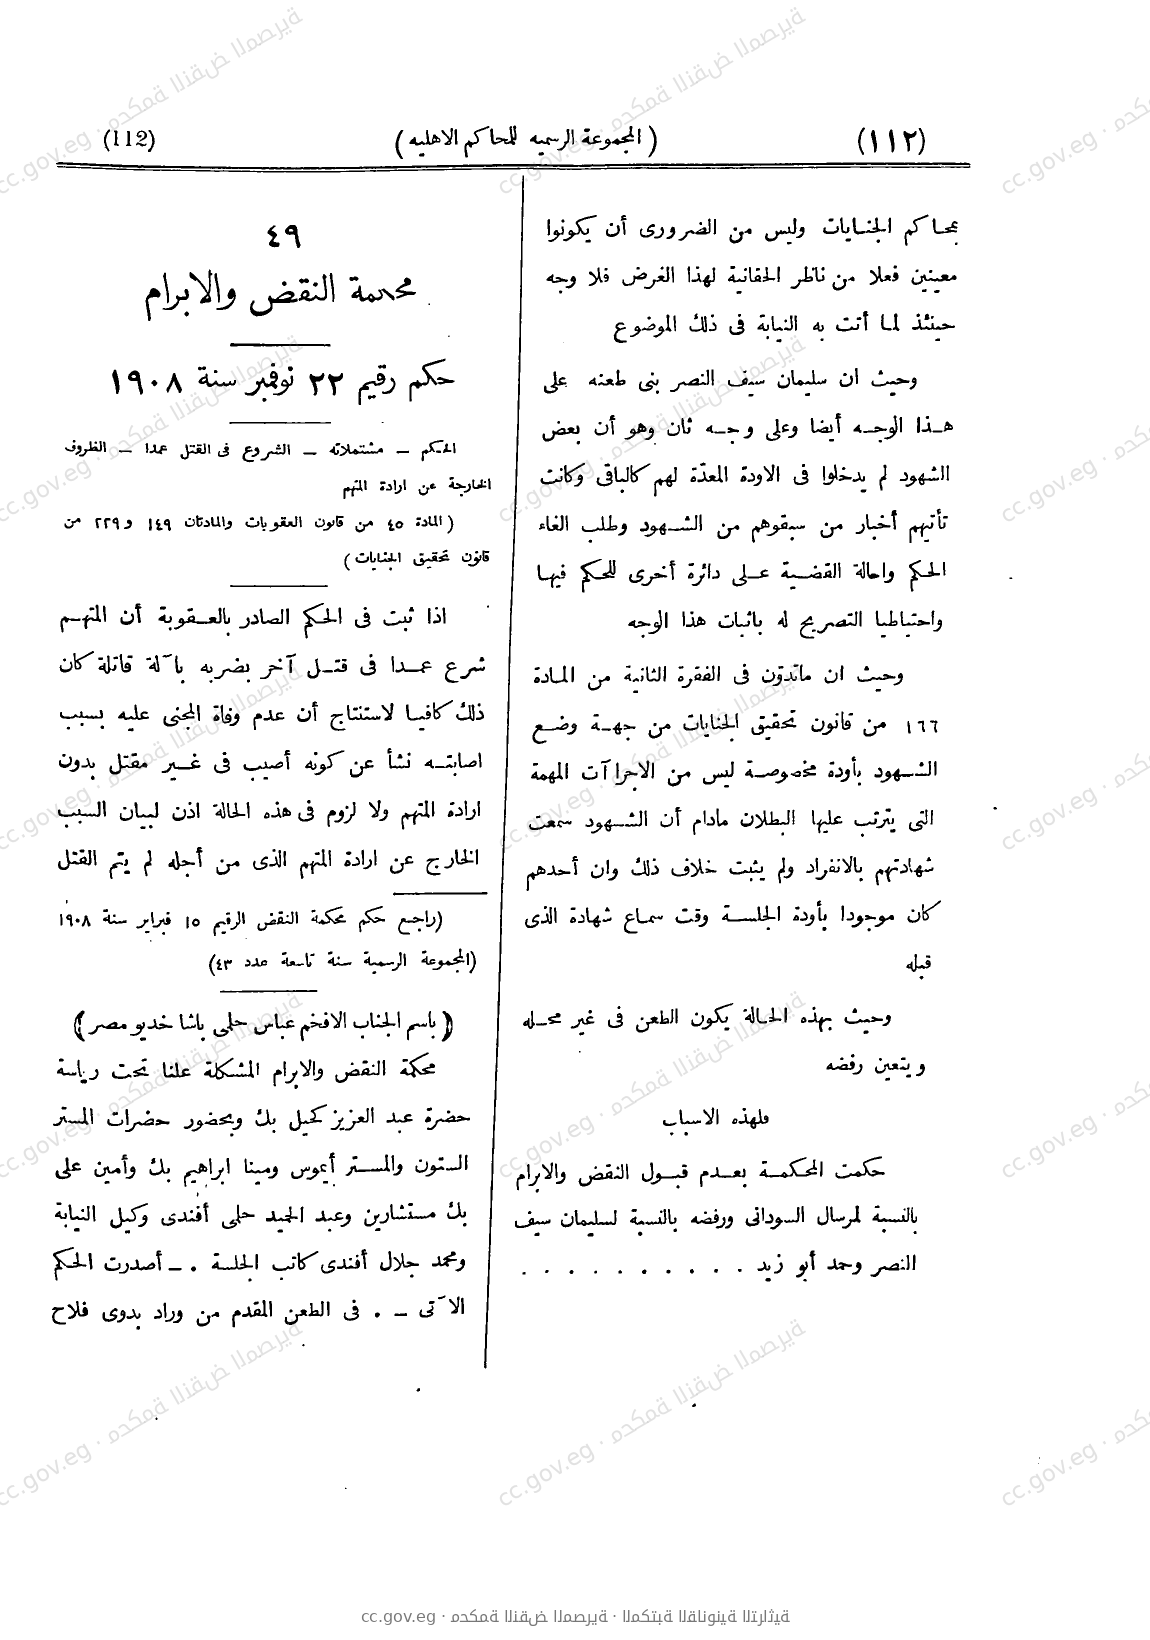 (١١٢) (المجموعة الرسميه للمحاكم الاهليه) (112)
بمحاكم الجنايات وليس من الضرورى أن يكونوا
معينين فعلا من ناظر الحقانية لهذا الغرض فلا وجه
حينئذ لما أتت به النيابة فى ذلك الموضوع
وحيث ان سليمان سيف النصر بنى طعنه على
هذا الوجه أيضا وعلى وجه ثان وهو أن بعض
الشهود لم يدخلوا فى الاودة المعدّة لهم كالباقى وكانت
تأتيهم أخبار من سبقوهم من الشهود وطلب الغاء
الحكم واحالة القضية على دائرة أخرى للحكم فيها
واحتياطيا التصريح له باثبات هذا الوجه
وحيث ان ماتدوّن فى الفقرة الثانية من المادة
١٦٦ من قانون تحقيق الجنايات من جهة وضع
الشهود بأودة مخصوصة ليس من الاجراآت المهمة
التى يترتب عليها البطلان مادام أن الشهود سمعت
شهادتهم بالانفراد ولم يثبت خلاف ذلك وان أحدهم
كان موجودا بأودة الجلسة وقت سماع شهادة الذى
قبله
وحيث بهذه الحالة يكون الطعن فى غير محله
ويتعين رفضه
فلهذه الاسباب
حكمت المحكمة بعدم قبول النقض والابرام
بالنسبة لمرسال السودانى ورفضه بالنسبة لسليمان سيف
النصر وحمد أبو زيد . . . . . . . . . .
٤٩
محكمة النقض والابرام
حكم رقيم ٢٢ نوفمبر سنة ١٩٠٨
الحكم – مشتملاته – الشروع فى القتل عمدا – الظروف
الخارجة عن ارادة المتهم
(المادة ٤٥ من قانون العقوبات والمادتان ١٤٩ و ٢٢٩ من
قانون تحقيق الجنايات)
اذا ثبت فى الحكم الصادر بالعقوبة أن المتهم
شرع عمدا فى قتل آخر بضربه بآلة قاتلة كان
ذلك كافيا لاستنتاج أن عدم وفاة المجنى عليه بسبب
اصابته نشأ عن كونه أصيب فى غير مقتل بدون
ارادة المتهم ولا لزوم فى هذه الحالة اذن لبيان السبب
الخارج عن ارادة المتهم الذى من أجله لم يتم القتل
(راجع حكم محكمة النقض الرقيم ١٥ فبراير سنة ١٩٠٨
(المجموعة الرسمية سنة تاسعة عدد ٤٣)
(باسم الجناب الافخم عباس حلمى باشا خديو مصر)
محكمة النقض والابرام المشكلة علنا تحت رياسة
حضرة عبد العزيز كحيل بك وبحضور حضرات المستر
الستون والمستر أيموس ومينا ابراهيم بك وأمين على
بك مستشارين وعبد الحميد حلمى أفندى وكيل النيابة
ومحمد جلال أفندى كاتب الجلسة . – أصدرت الحكم
الآتى – . فى الطعن المقدم من وراد بدوى فلاح
cc.gov.eg · محكمة النقض المصرية · المكتبة القانونية التراثية